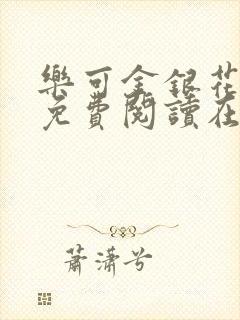 樂可金銀花
免費閱讀在
蕭瀟兮